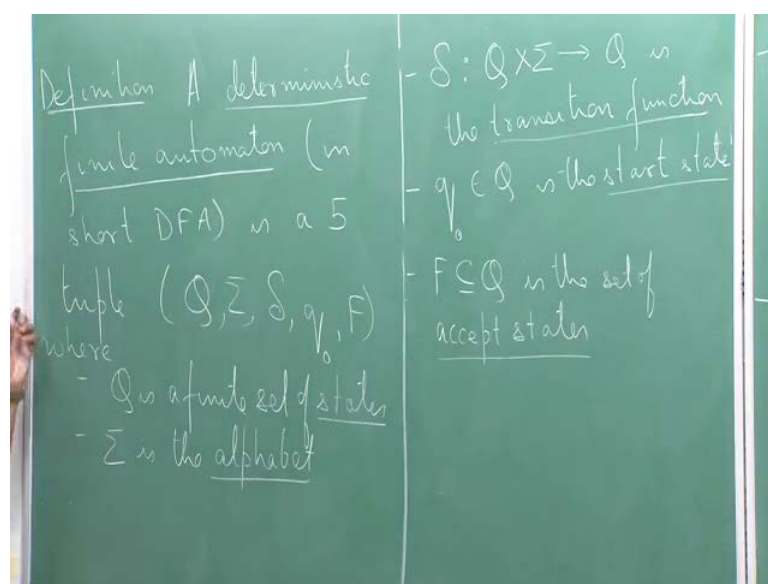 Definition A deterministic
finite automaton (in
short DFA) is a 5
tuple (Q, Σ, δ, q₀, F)
where
- Q is a finite set of states
- Σ is the alphabet
- δ : Q × Σ → Q is
the transition function
- q₀ ∈ Q is the start state
- F ⊆ Q is the set of
accept states